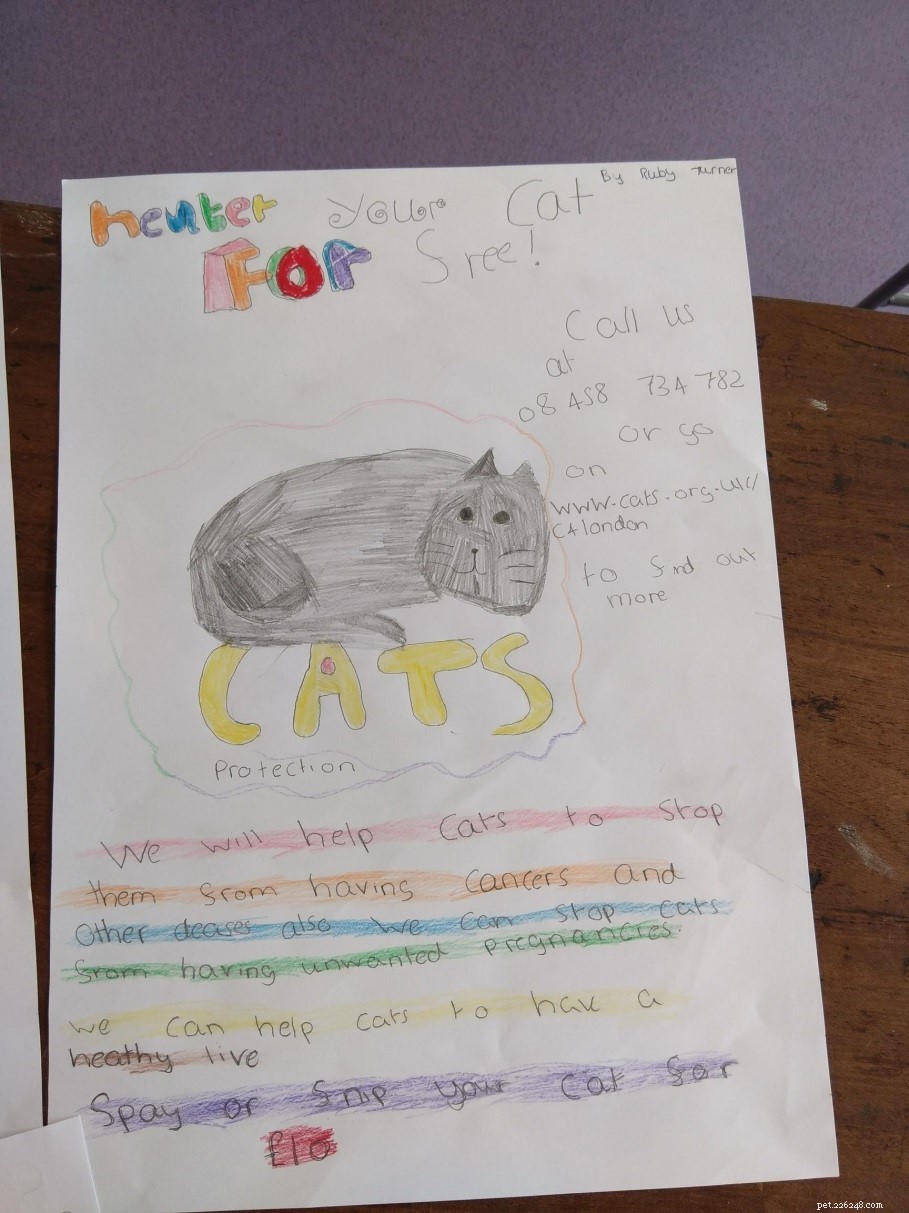 By Ruby Turner
neuter your Cat
FOR free!
Call us
at
08 458 734 782
or go
on
www.cats.org.uk/
c4london
to find out
more
CATS
Protection
We will help Cats to stop
them from having Cancers and
Other deases also we can stop cats
from having unwanted pregnancies.
we can help cats to have a
heathy live
Spay or Snip your Cat for
£10
pet.226248.com